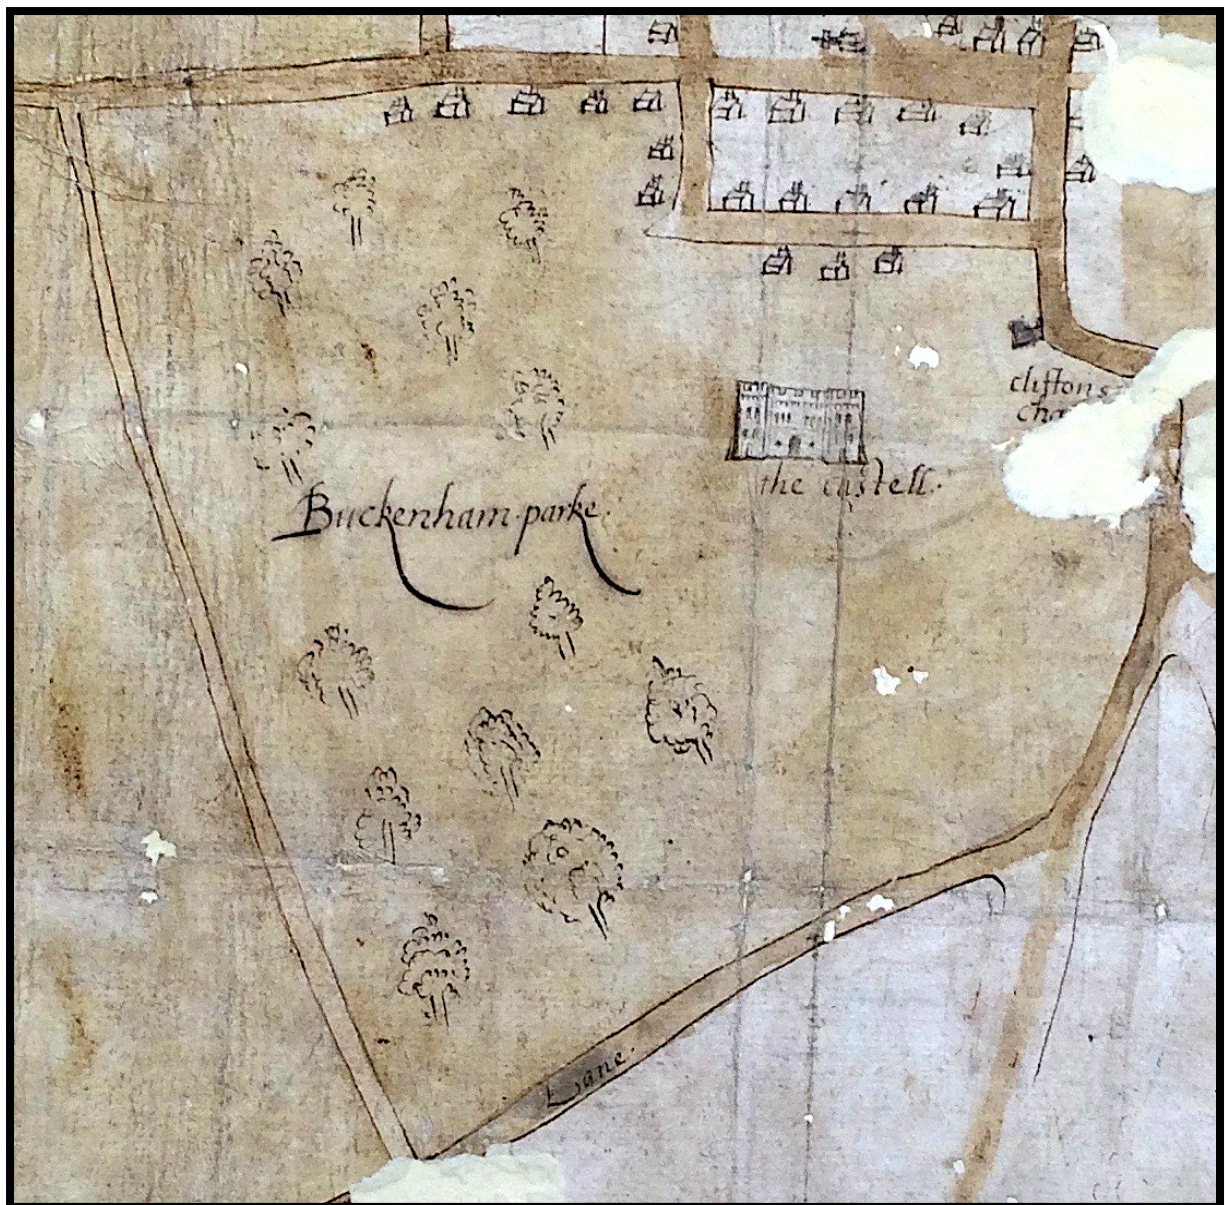 cliftons
cha
the castell.
Buckenham parke.
Lane.